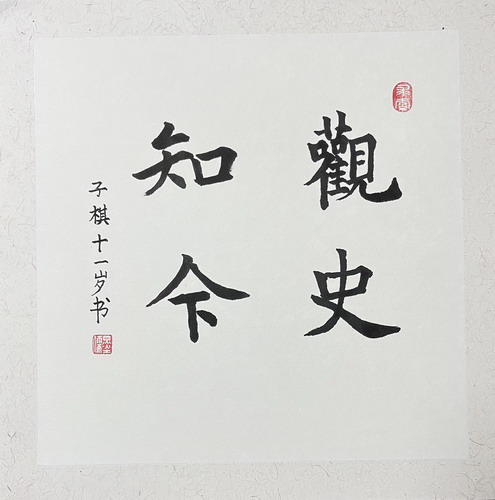 觀史
知今
子棋十一岁书